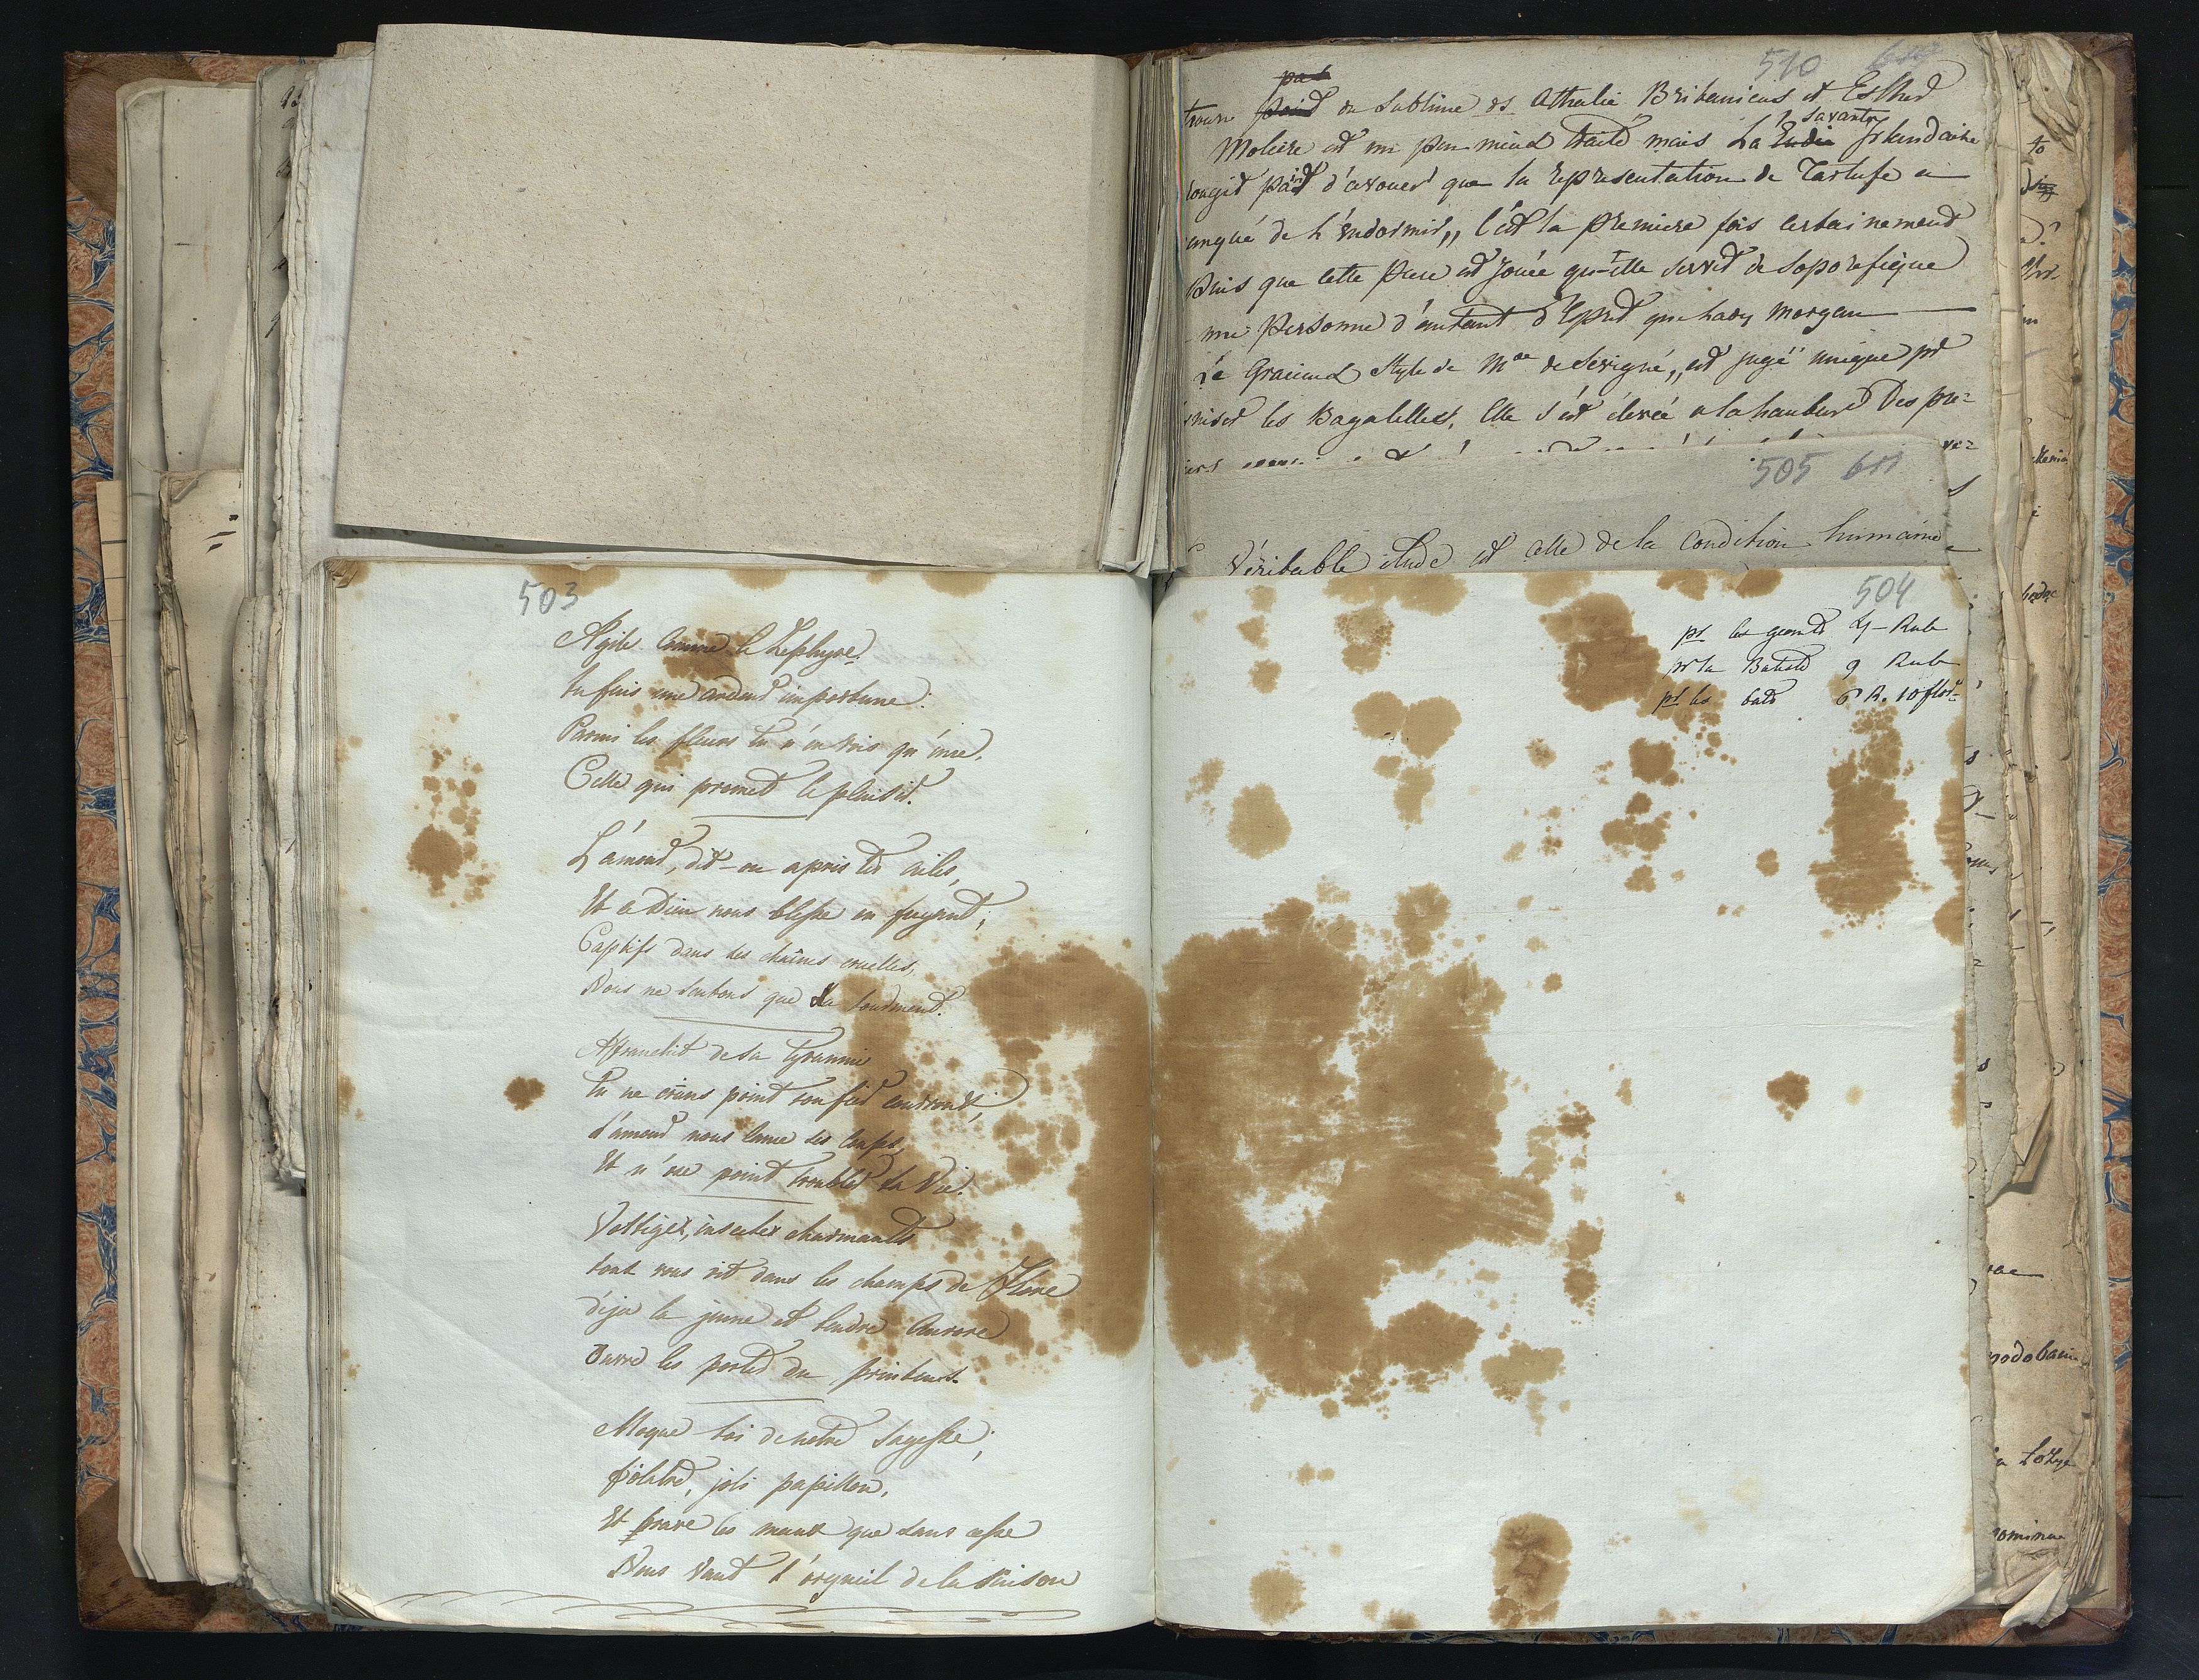 510 610
pas
trouve point du Sublime ds Athalie Britanicus et Esther
savante
Moliere est un peu mieux traité mais La Irlandaise
rougit point d'avouer que la représentation de Tartufe a
anqué de l'endormir,, C'est la premiere fois certainement
puis que cette piece est jouée qu-elle servit de soporifique
une personne d'autant d'Esprit que Lady Morgan
Le Gracieux Style de Mde de Sévigné,, est jugé unique pr
les Bagatelles, Elle s'est élevée a la hauteur Des pre=
505 611
Véritable étude est celle de la Condition humaine
503
Agile comme le Zephyre
tu fuis une ardeur importune:
Parmi les fleurs tu n'en vois qu'une,
Celle qui promet le plaisir.
L'amour, dit-on a pris tes ailes,
Et ce Dieu nous blesse en fuyant;
Captifs dans ses chaînes cruelles,
Nous ne sentons que sa tourment.
Affranchit de sa tyrannie
Tu ne crains point son fier courroux;
L'amour nous lance ses coups,
Et n'ose point troubler ta Vie.
Voltigez, insectes charmants
tout vous rit dans les champs de Flore
déja la jeune et tendre Aurore
Ouvre les portes du printems.
Moque toi de notre sagesse;
folatre, joli papillon,
Et brave les maux que sans cesse
Nous vaut l'orgueil de la raison
504
pr les 4 - Rub
pr la Batiste 9 Rub
pr les bats 6 R. 10 flor=